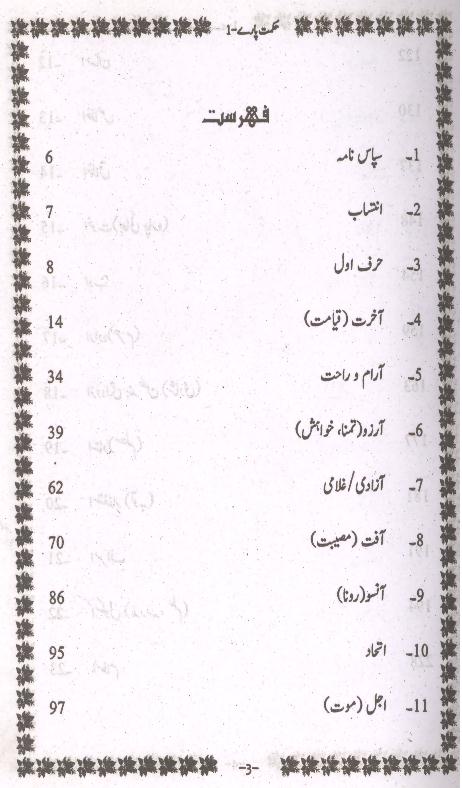 حکمت پارے-1
فہرست
1۔ سپاس نامہ 6
2۔ انتساب 7
3۔ حرف اول 8
4۔ آخرت (قیامت) 14
5۔ آرام و راحت 34
6۔ آرزو (تمنا، خواہش) 39
7۔ آزادی/غلامی 62
8۔ آفت (مصیبت) 70
9۔ آنسو (رونا) 86
10۔ اتحاد 95
11۔ اجل (موت) 97
-3-